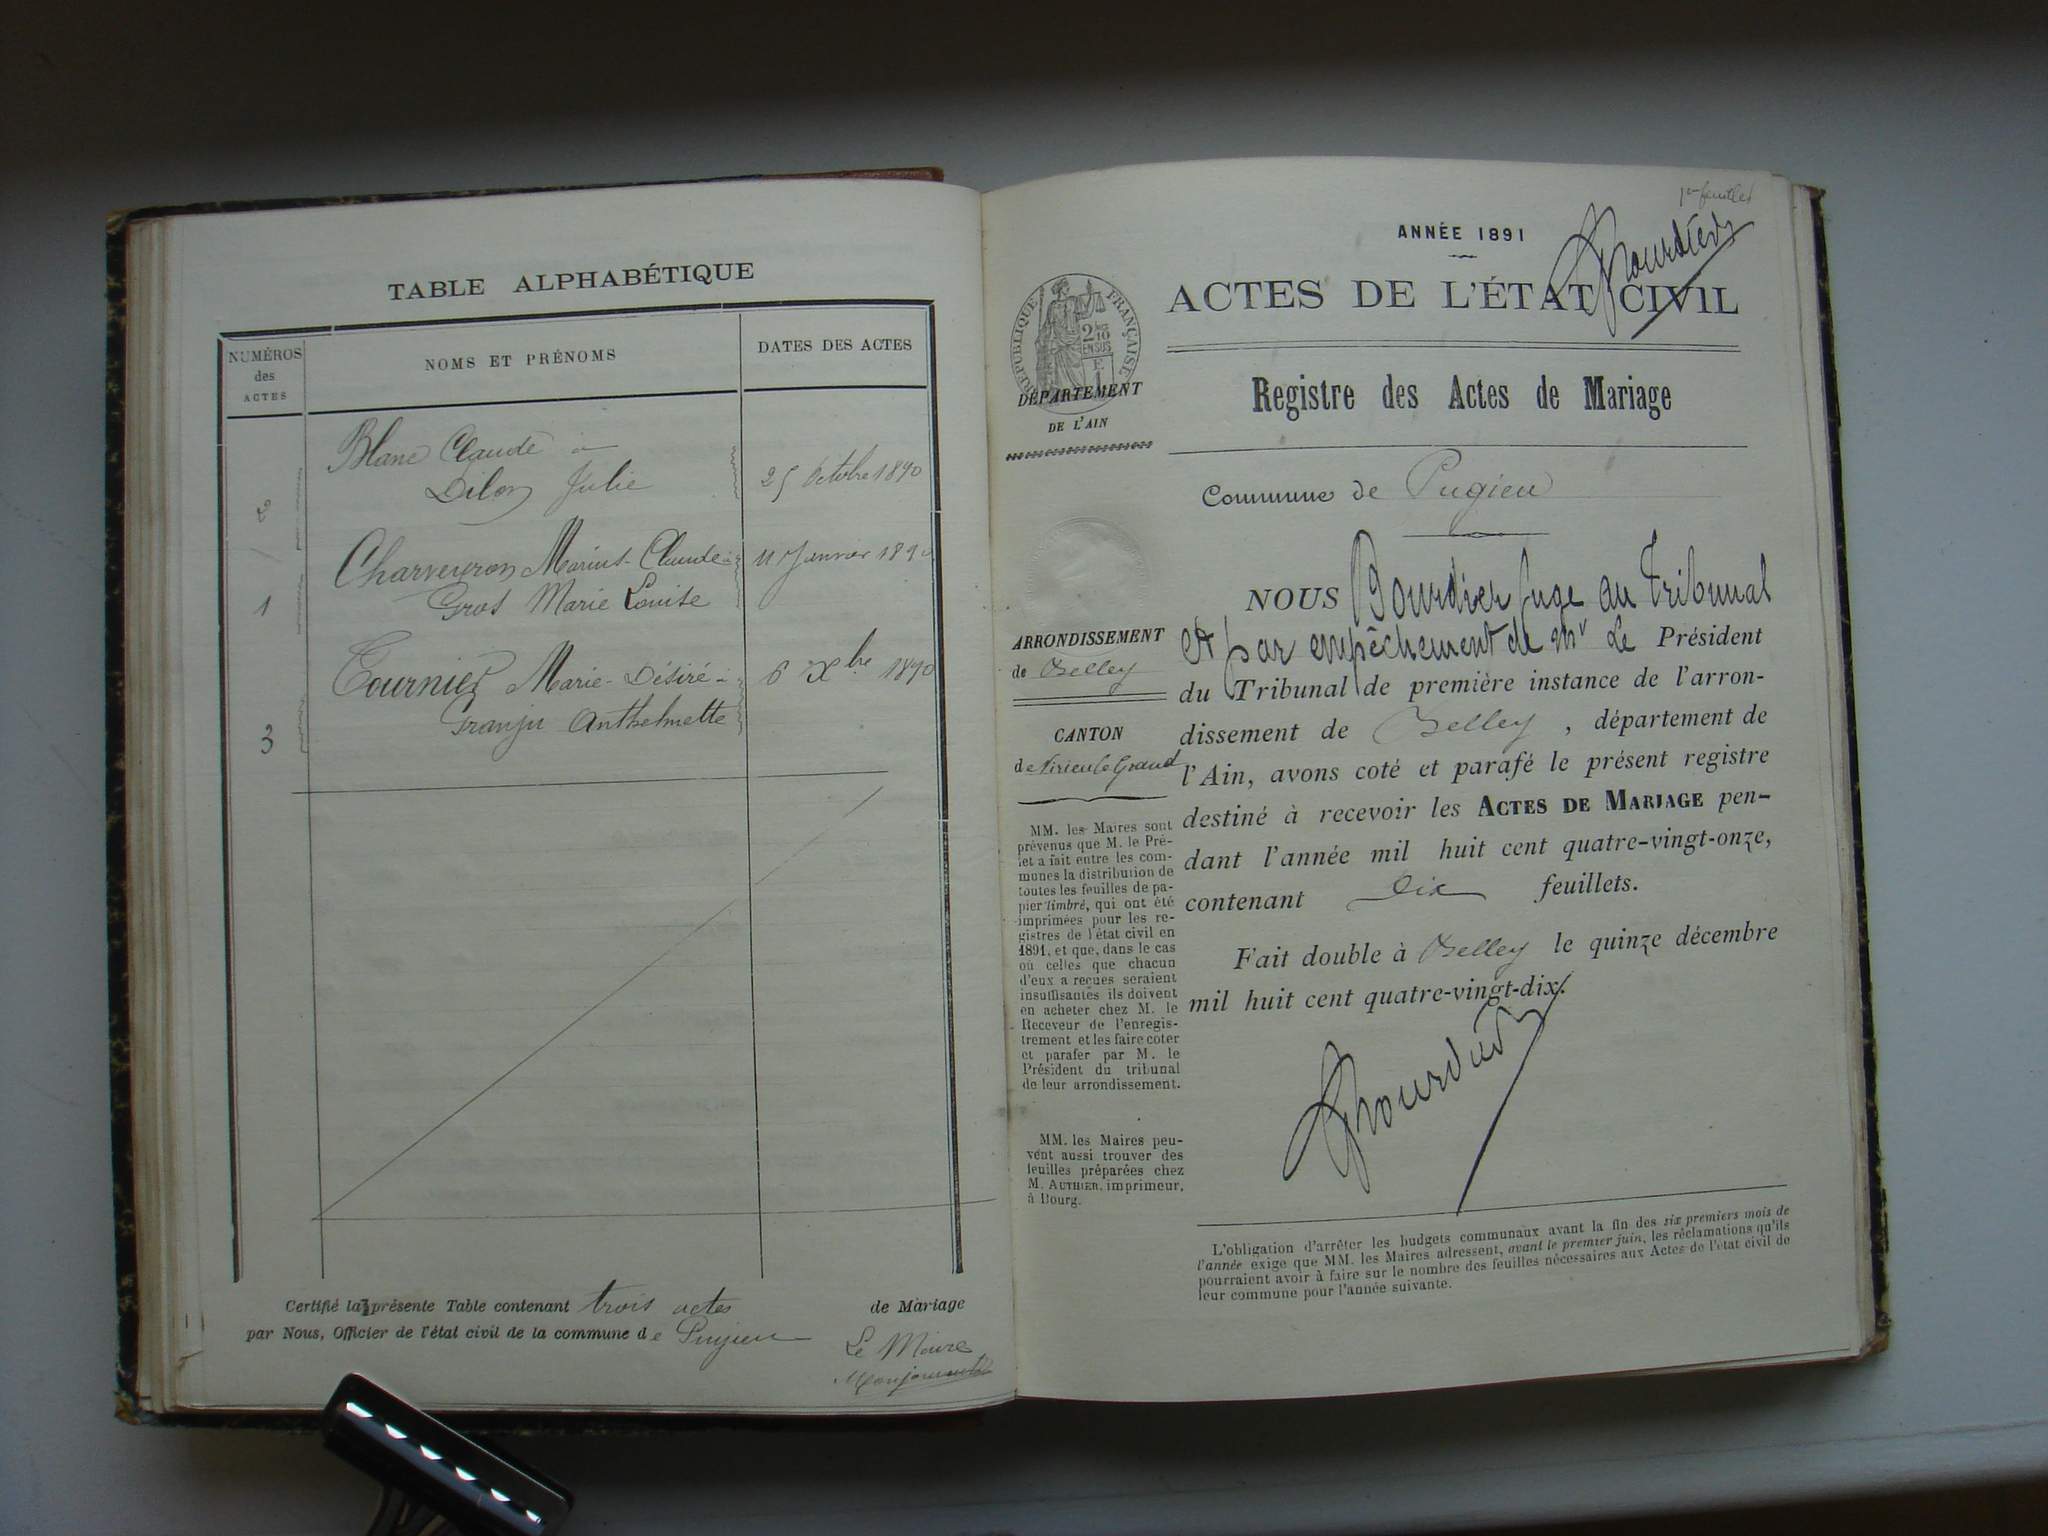 TABLE ALPHABÉTIQUE
NUMÉROS des ACTES
NOMS ET PRÉNOMS
DATES DES ACTES
Blanc Claude à
2 Dilon Julie 25 Octobre 1890
Charveyron Marius-Claude à 11 Janvier 1890
1 Gros Marie Louise
Tournier Marie-Désiré à 6 Xbre 1890
3 Granju Anthelmette
Certifié la présente Table contenant trois actes de Mariage
par Nous, Officier de l'état civil de la commune de Pugieu
Le Maire
1er feuillet
ANNÉE 1891
Bourdier
ACTES DE L'ÉTAT CIVIL
RÉPUBLIQUE FRANÇAISE
2 10
EN SUS
E
DÉPARTEMENT
DE L'AIN
Registre des Actes de Mariage
Commune de Pugieu
ARRONDISSEMENT
de Belley
CANTON
de Virieu le Grand
MM. les Maires sont
prévenus que M. le Pré-
fet a fait entre les com-
munes la distribution de
toutes les feuilles de pa-
pier timbré, qui ont été
imprimées pour les re-
gistres de l'état civil en
1891, et que, dans le cas
où celles que chacun
d'eux a reçues seraient
insuffisantes ils doivent
en acheter chez M. le
Receveur de l'enregis-
trement et les faire coter
et parafer par M. le
Président du tribunal
de leur arrondissement.
MM. les Maires peu-
vent aussi trouver des
feuilles préparées chez
M. AUTHIER, imprimeur,
à Bourg.
NOUS Bourdier Juge au Tribunal
et par empêchement de Mr Le Président
du Tribunal de première instance de l'arron-
dissement de Belley, département de
l'Ain, avons coté et parafé le présent registre
destiné à recevoir les ACTES DE MARIAGE pen-
dant l'année mil huit cent quatre-vingt-onze,
contenant dix feuillets.
Fait double à Belley le quinze décembre
mil huit cent quatre-vingt-dix.
Bourdier
L'obligation d'arrêter les budgets communaux avant la fin des six premiers mois de
l'année exige que MM. les Maires adressent, avant le premier juin, les réclamations qu'ils
pourraient avoir à faire sur le nombre des feuilles nécessaires aux Actes de l'état civil de
leur commune pour l'année suivante.